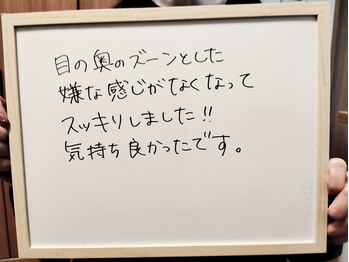 目の奥のズーンとした
嫌な感じがなくなって
スッキリしました!!
気持ち良かったです。